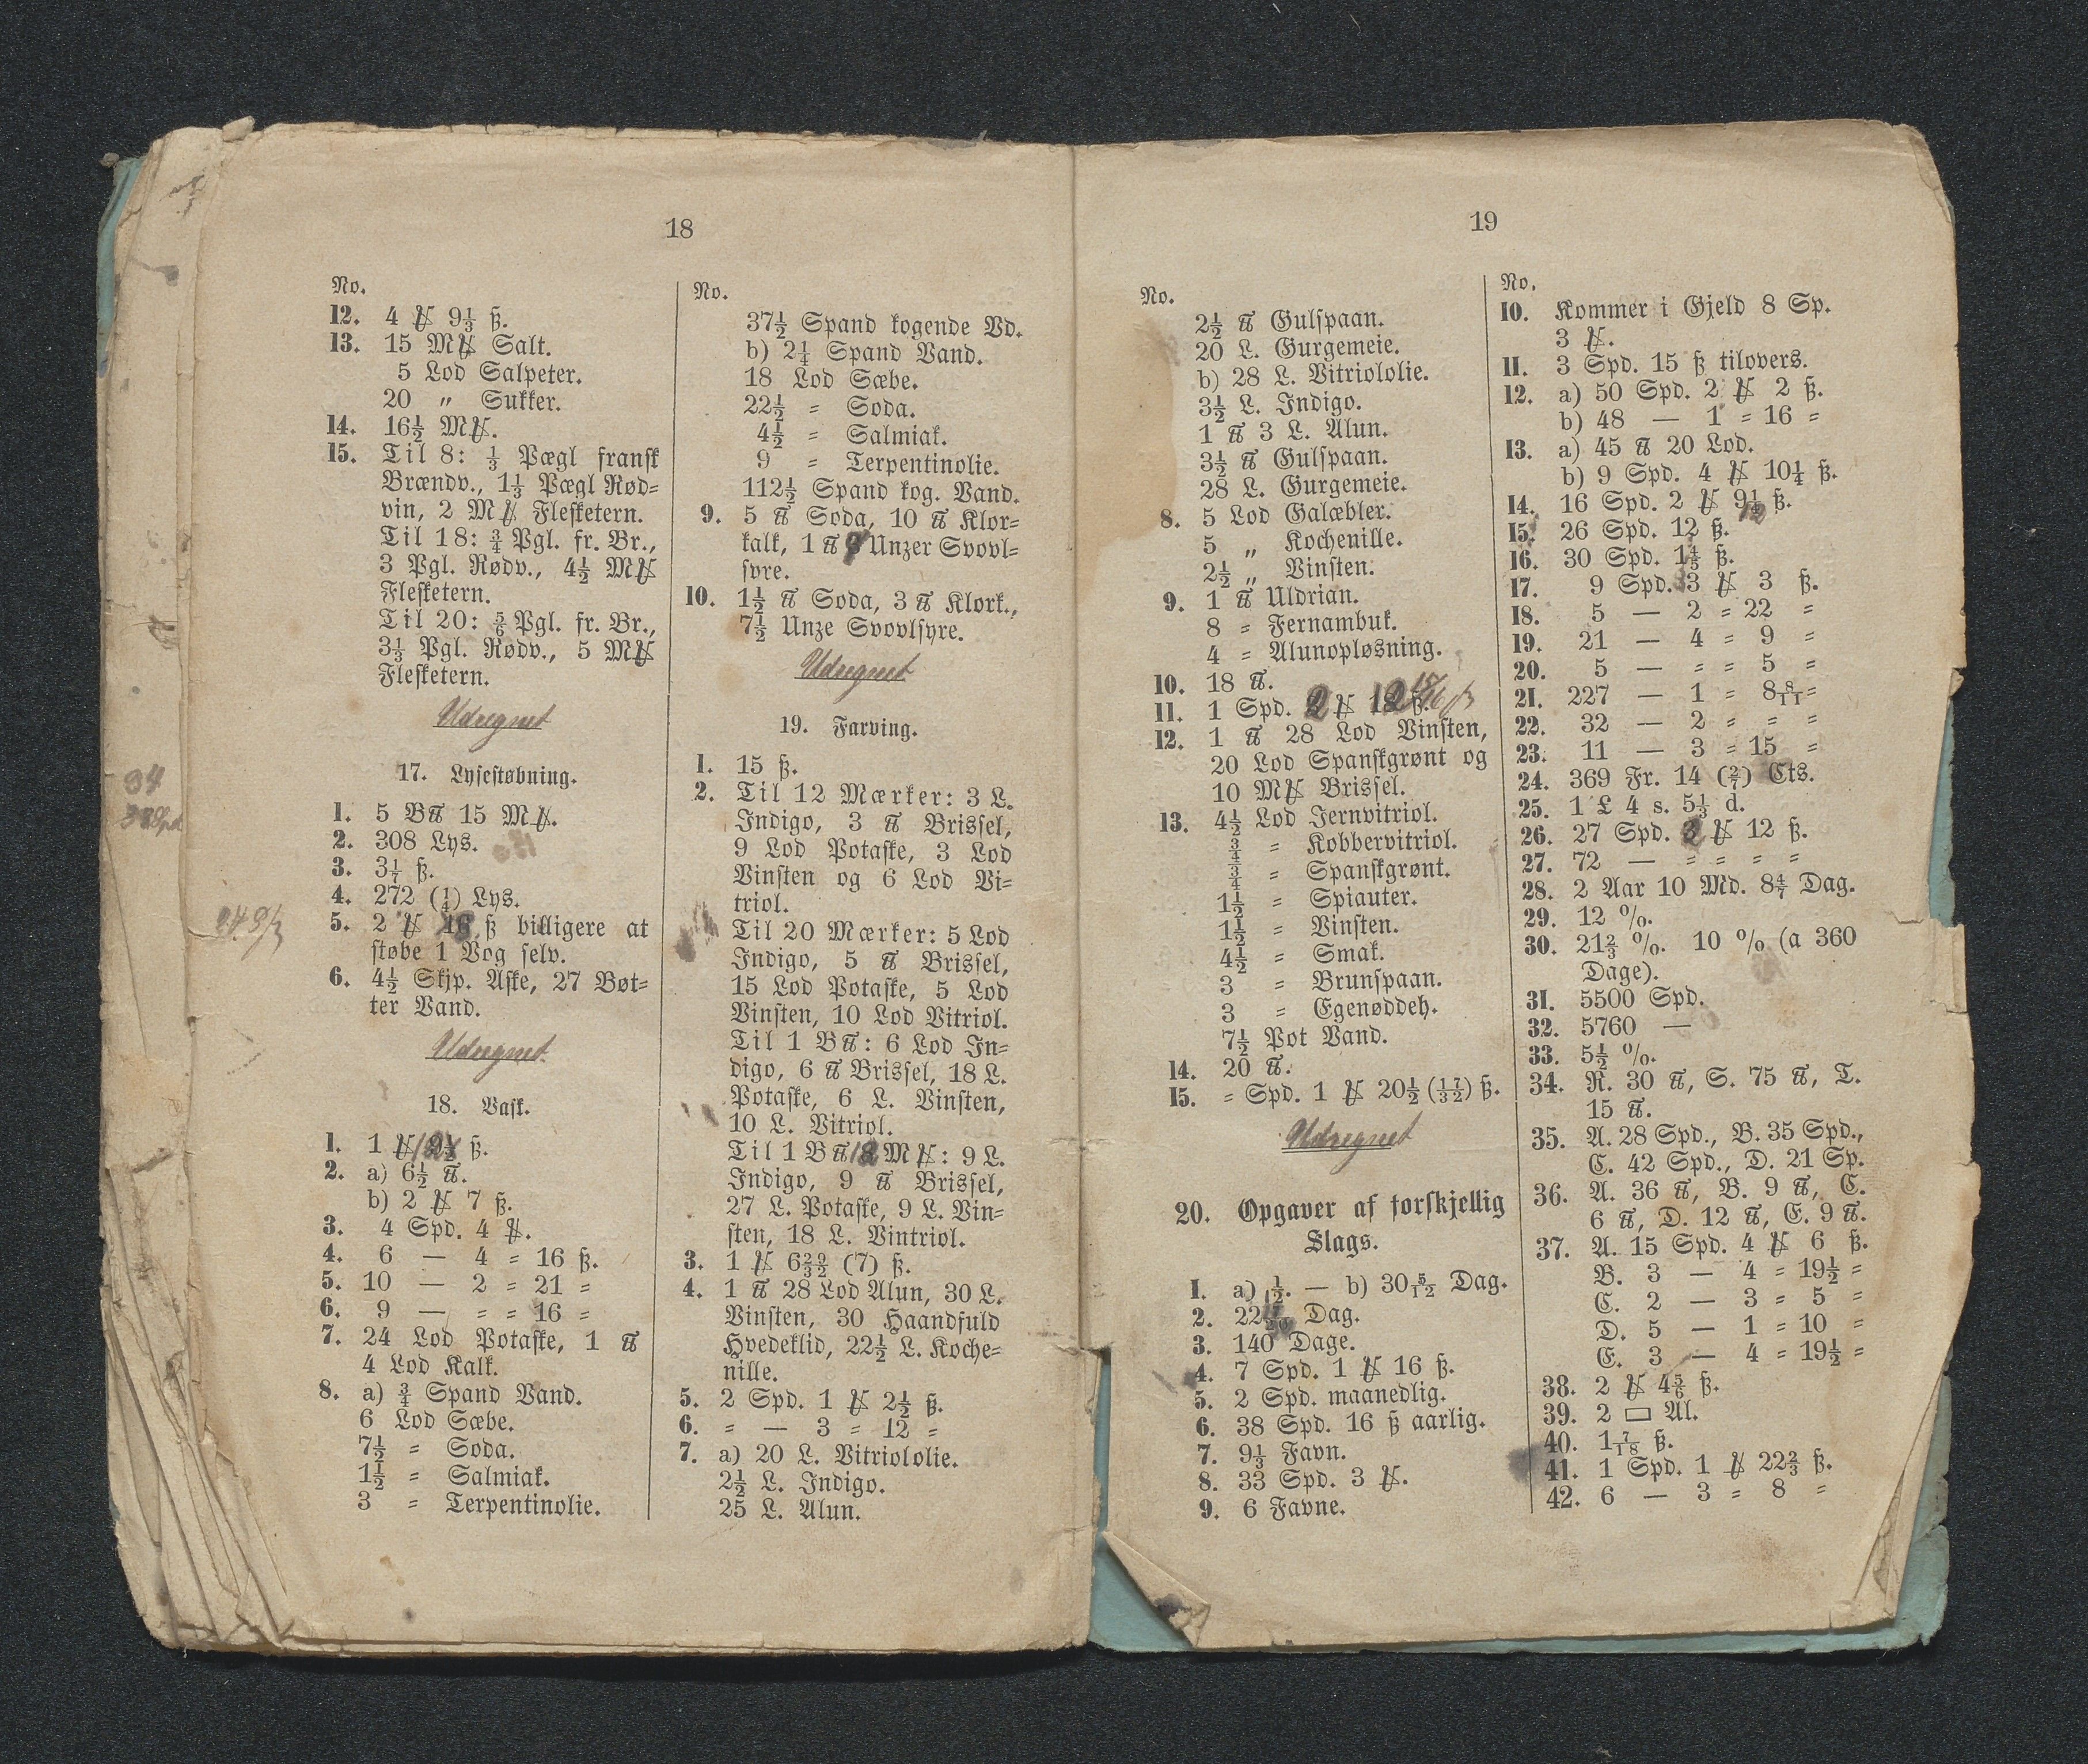 18
No.
12. 4 ℔ 9⅓ ß.
13. 15 M℔ Salt.
5 Lod Salpeter.
20 „ Sukker.
14. 16½ M℔.
15. Til 8: ⅓ Pægl fransk
Brændv., 1⅓ Pægl Rød=
vin, 2 M℔ Flesketern.
Til 18: ¾ Pgl. fr. Br.,
3 Pgl. Rødv., 4½ M℔
Flesketern.
Til 20: ⅚ Pgl. fr. Br.,
3⅓ Pgl. Rødv., 5 M℔
Flesketern.
Udregnet
17. Lysestøbning.
1. 5 B℔ 15 M℔.
2. 308 Lys.
3. 3 1/7 ß.
4. 272 (¼) Lys.
5. 2 ℔ 16 ß billigere at
støbe 1 Vog selv.
6. 4½ Skjp. Aske, 27 Bøt=
ter Vand.
Udregnet
18. Vask.
1. 1 ℔ ß.
2. a) 6½ ℔.
b) 2 ℔ 7 ß.
3. 4 Spd. 4 ℔.
4. 6 — 4 = 16 ß.
5. 10 — 2 = 21 =
6. 9 — = = 16 =
7. 24 Lod Potaske, 1 ℔
4 Lod Kalk.
8. a) ¾ Spand Vand.
6 Lod Sæbe.
7½ = Soda.
1½ = Salmiak.
3 = Terpentinolie.
No.
37½ Spand kogende Vd.
b) 2¼ Spand Vand.
18 Lod Sæbe.
22½ = Soda.
4½ = Salmiak.
9 = Terpentinolie.
112½ Spand kog. Vand.
9. 5 ℔ Soda, 10 ℔ Klor=
kalk, 1 ℔ 9 Unzer Svovl=
syre.
10. 1½ ℔ Soda, 3 ℔ Klork.,
7½ Unze Svovlsyre.
Udregnet
19. Farving.
1. 15 ß.
2. Til 12 Mærker: 3 L.
Indigo, 3 ℔ Brissel,
9 Lod Potaske, 3 Lod
Vinsten og 6 Lod Vi=
triol.
Til 20 Mærker: 5 Lod
Indigo, 5 ℔ Brissel,
15 Lod Potaske, 5 Lod
Vinsten, 10 Lod Vitriol.
Til 1 B℔: 6 Lod In=
digo, 6 ℔ Brissel, 18 L.
Potaske, 6 L. Vinsten,
10 L. Vitriol.
Til 1 B℔ M℔: 9 L.
Indigo, 9 ℔ Brissel,
27 L. Potaske, 9 L. Vin=
sten, 18 L. Vintriol.
3. 1 ℔ 6 29/32 (7) ß.
4. 1 ℔ 28 Lod Alun, 30 L.
Vinsten, 30 Haandfuld
Hvedeklid, 22½ L. Koche=
nille.
5. 2 Spd. 1 ℔ 2½ ß.
6. = — 3 = 12 =
7. a) 20 L. Vitriololie.
2½ L. Indigo.
25 L. Alun.
19
No.
2½ ℔ Gulspaan.
20 L. Gurgemeie.
b) 28 L. Vitriololie.
3½ L. Indigo.
1 ℔ 3 L. Alun.
3½ ℔ Gulspaan.
28 L. Gurgemeie.
8. 5 Lod Galæbler.
5 „ Kochenille.
2½ „ Vinsten.
9. 1 ℔ Uldrian.
8 = Fernambuk.
4 = Alunopløsning.
10. 18 ℔.
11. 1 Spd. 2 ℔ 12 ß.
12. 1 ℔ 28 Lod Vinsten,
20 Lod Spanskgrønt og
10 M℔ Brissel.
13. 4½ Lod Jernvitriol.
¾ = Kobbervitriol.
¾ = Spanskgrønt.
1½ = Spiauter.
1½ = Vinsten.
4½ = Smak.
3 = Brunspaan.
3 = Egenøddeh.
7½ Pot Vand.
14. 20 ℔.
15. = Spd. 1 ℔ 20½ (17/32) ß.
Udregnet
20. Opgaver af forskjellig
Slags.
1. a) ½. — b) 30 5/12 Dag.
2. Dag.
3. 140 Dage.
4. 7 Spd. 1 ℔ 16 ß.
5. 2 Spd. maanedlig.
6. 38 Spd. 16 ß aarlig.
7. 9⅓ Favn.
8. 33 Spd. 3 ℔.
9. 6 Favne.
No.
10. Kommer i Gjeld 8 Sp.
3 ℔.
11. 3 Spd. 15 ß tilovers.
12. a) 50 Spd. 2 ℔ 2 ß.
b) 48 — 1 = 16 =
13. a) 45 ℔ 20 Lod.
b) 9 Spd. 4 ℔ 10¼ ß.
14. 16 Spd. 2 ℔ ß.
15. 26 Spd. 12 ß.
16. 30 Spd. ß.
17. 9 Spd. 3 ℔ 3 ß.
18. 5 — 2 = 22 =
19. 21 — 4 = 9 =
20. 5 — = = 5 =
21. 227 — 1 = 8 8/11 =
22. 32 — 2 = = =
23. 11 — 3 = 15 =
24. 369 Fr. 14 (2/7) Cts.
25. 1 £ 4 s. 5⅓ d.
26. 27 Spd. 2 ℔ 12 ß.
27. 72 — = = = =
28. 2 Aar 10 Md. 8 4/7 Dag.
29. 12 %.
30. 21⅔ %. 10 % (a 360
Dage).
31. 5500 Spd.
32. 5760 —
33. 5½ %.
34. R. 30 ℔, S. 75 ℔, T.
15 ℔.
35. A. 28 Spd., B. 35 Spd.,
C. 42 Spd., D. 21 Sp.
36. A. 36 ℔, B. 9 ℔, C.
6 ℔, D. 12 ℔, E. 9 ℔.
37. A. 15 Spd. 4 ℔ 6 ß.
B. 3 — 4 = 19½ =
C. 2 — 3 = 5 =
D. 5 — 1 = 10 =
E. 3 — 4 = 19½ =
38. 2 ℔ 4⅚ ß.
39. 2 ▭ Al.
40. 1 7/18 ß.
41. 1 Spd. 1 ℔ 22⅔ ß.
42. 6 — 3 = 8 =